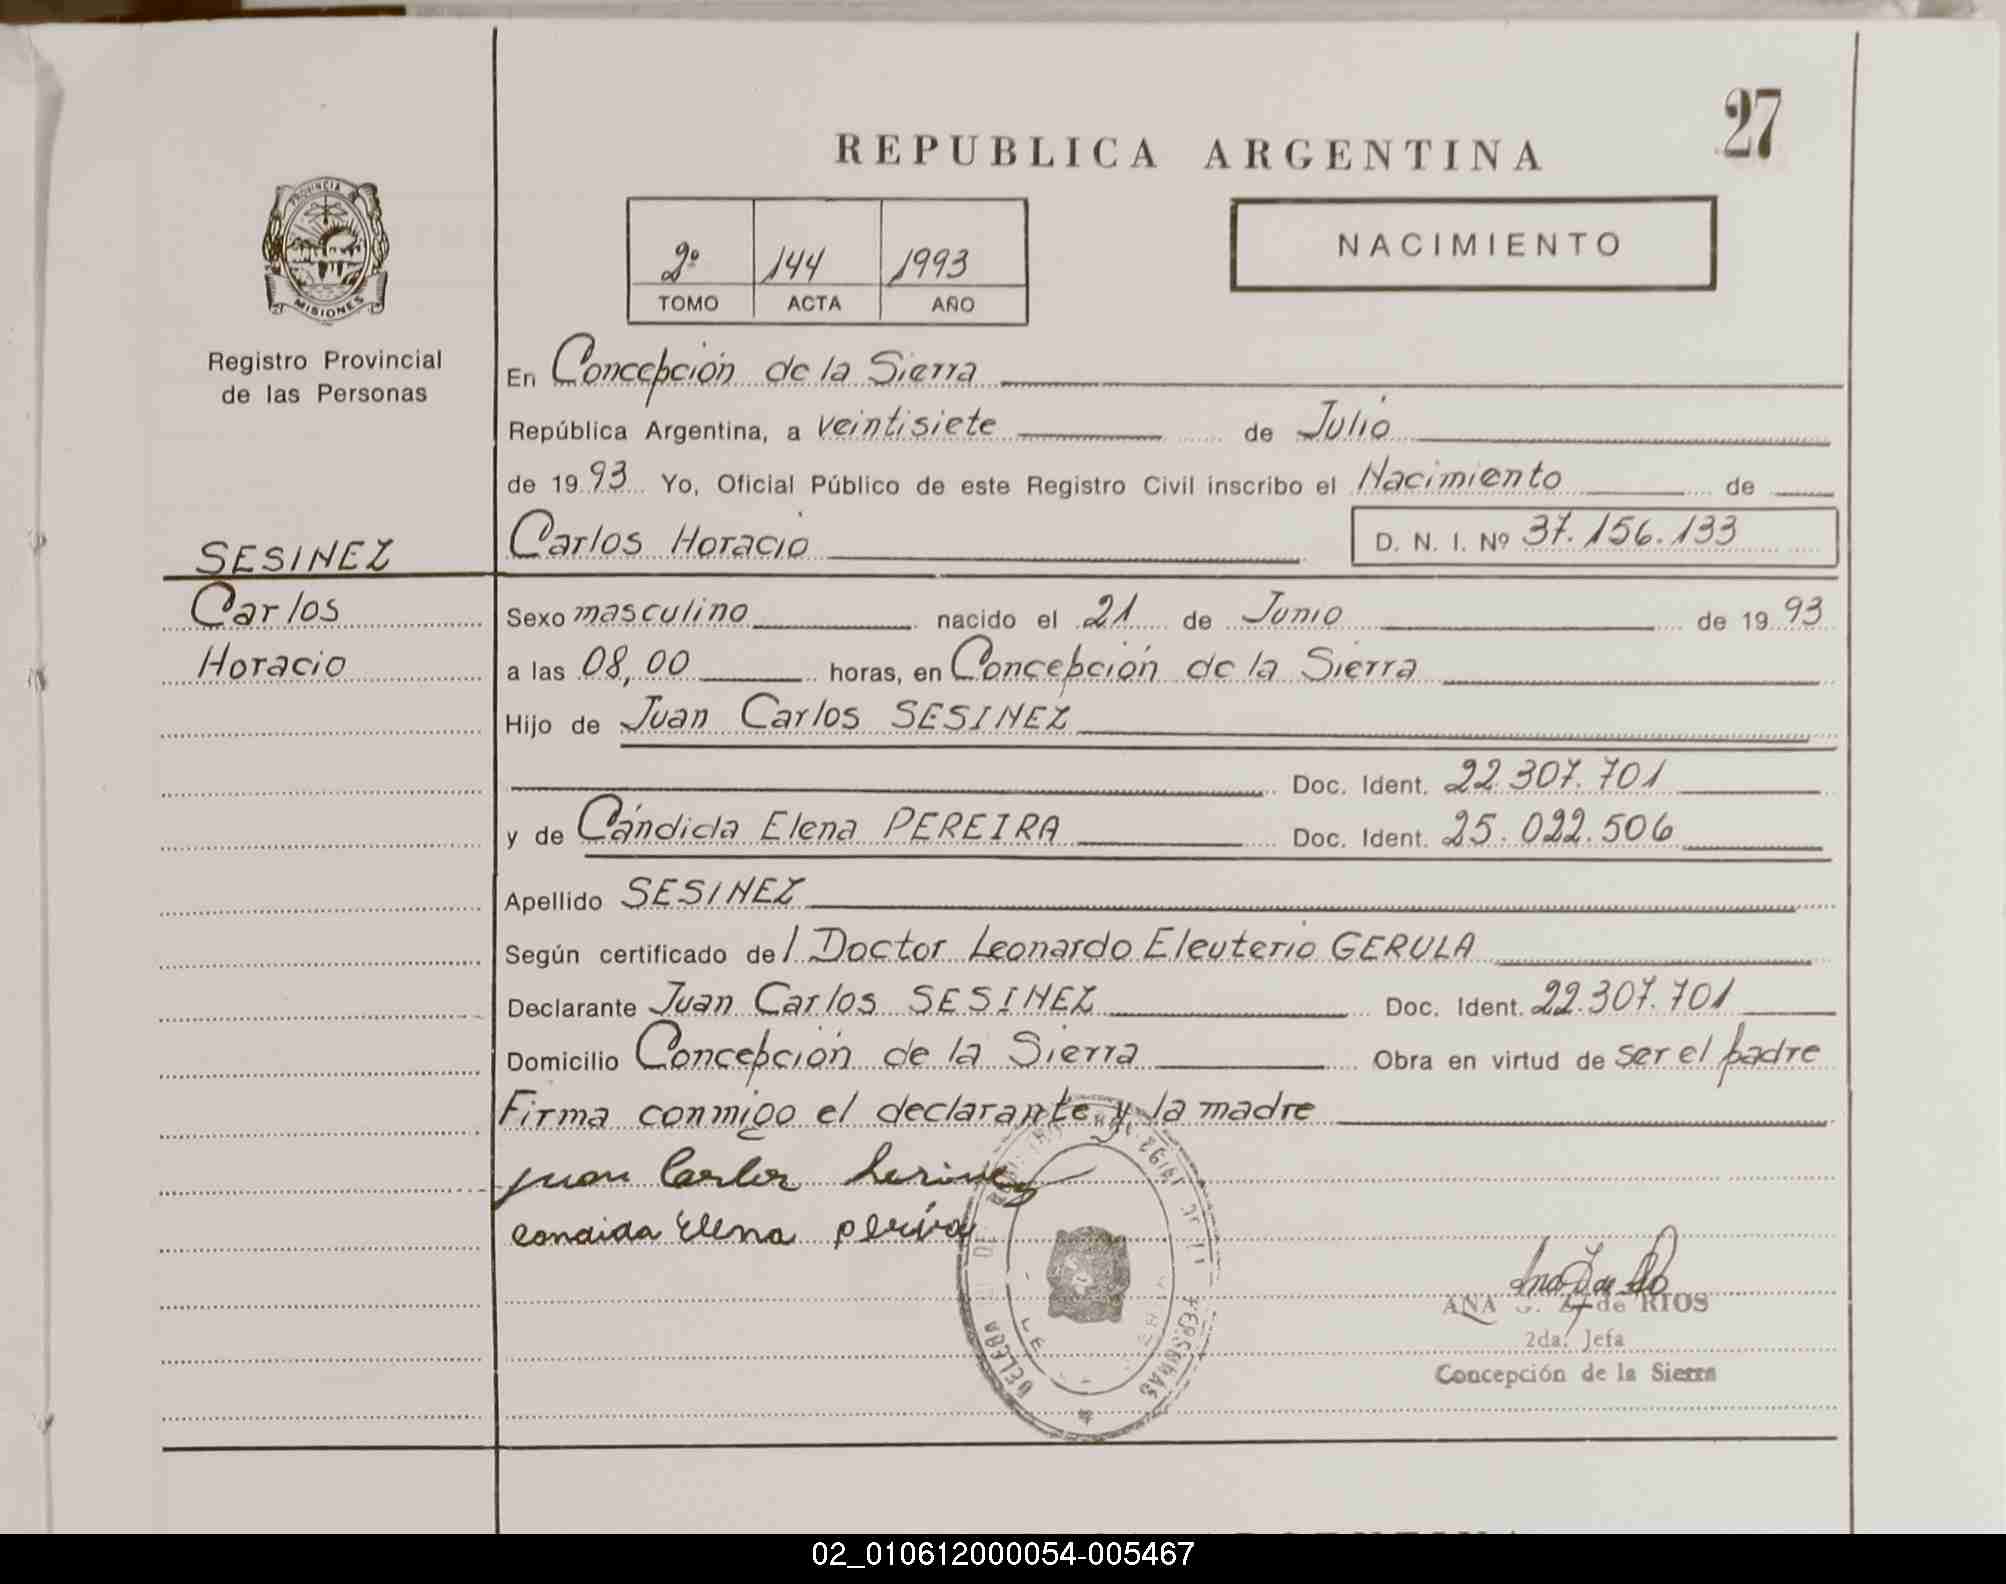 27
REPUBLICA ARGENTINA
PROVINCIA DE
MISIONES
Registro Provincial
de las Personas
2º 144 1993
TOMO ACTA AÑO
NACIMIENTO
En Concepción de la Sierra
República Argentina, a veintisiete de Julio
de 1993 Yo, Oficial Público de este Registro Civil inscribo el Nacimiento de
Carlos Horacio D. N. I. Nº 37.156.133
SESINEZ
Carlos
Horacio
Sexo masculino nacido el 21 de Junio de 1993
a las 08,00 horas, en Concepción de la Sierra
Hijo de Juan Carlos SESINEZ
Doc. Ident. 22.307.701
y de Cándida Elena PEREIRA Doc. Ident. 25.022.506
Apellido SESINEZ
Según certificado del Doctor Leonardo Eleuterio GERULA
Declarante Juan Carlos SESINEZ Doc. Ident. 22.307.701
Domicilio Concepción de la Sierra Obra en virtud de ser el padre
Firma conmigo el declarante y la madre
Juan Carlos Sesinez
candida Elena pereira
ANA de RIOS
2da. Jefa
Concepción de la Sierra
PERSONAS
02_010612000054-005467